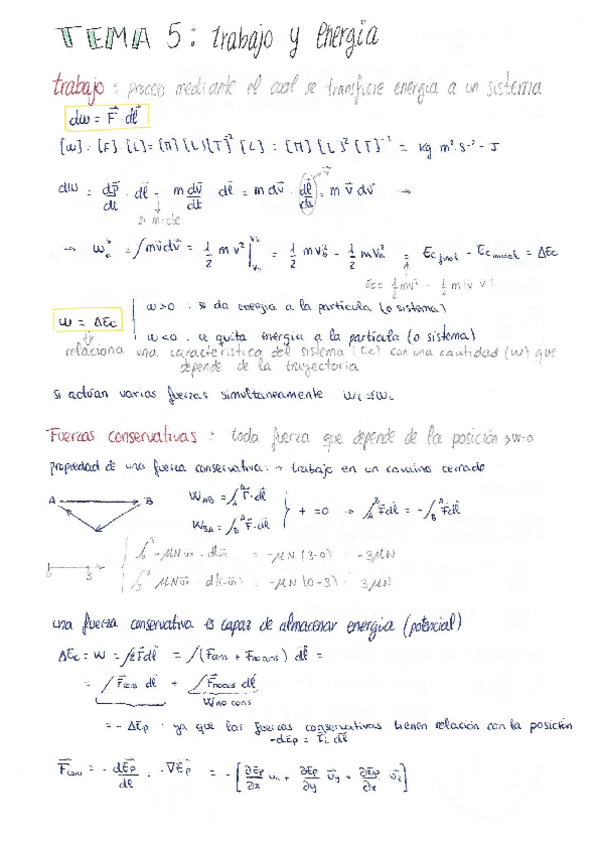 TEMA 5: trabajo y energía
trabajo: proceso mediante el cual se transfiere energía a un sistema
dw = F⃗ · dl⃗
[W] = [F] · [L] = [M] [L] [T]⁻² [L] = [M] [L]² [T]⁻² = kg m² · s⁻² = J
dw = dp⃗/dt · dl⃗ = m dv⃗/dt dl⃗ = m dv⃗ · dl⃗/dt = m v⃗ dv⃗ →
si m=cte
→ Wₐᵇ = ∫ m v⃗ dv⃗ = 1/2 m v² | = 1/2 m v_b² - 1/2 m v_a² = Ec final - Ec inicial = ΔEc
Ec = 1/2 mv² = 1/2 m (v v)
W = ΔEc
w>0 . si da energía a la partícula (o sistema)
w<0 . se quita energía a la partícula (o sistema)
relaciona una característica del sistema (Ec) con una cantidad (w) que
depende de la trayectoria
si actúan varias fuerzas simultaneamente
Fuerzas conservativas: toda fuerza que depende de la posición → w=0
propiedad de una fuerza conservativa: → trabajo en un camino cerrado
A B W_AB = ∫_A^B F⃗ · dl⃗
W_BA = ∫_B^A F⃗ · dl⃗ } + = 0 → ∫_A^B F⃗ dl⃗ = - ∫_B^A F⃗ dl⃗
0 3 = -μN (3-0) = -3μN
= -μN (0-3) = 3μN
una fuerza conservativa es capaz de almacenar energía (potencial)
ΔEc = W = ∫ΣF⃗ dl⃗ = ∫(F⃗cons + F⃗no cons) dl⃗ =
= ∫F⃗cons dl⃗ + ∫F⃗no cons dl⃗
W no cons
= - ΔEp . ya que las fuerzas conservativas tienen relación con la posición
-dEp = F⃗ · dl⃗
F⃗cons = - dE⃗p/dl = -∇E⃗p = - [∂Ep/∂x u⃗x + ∂Ep/∂y u⃗y + ∂Ep/∂x u⃗z]